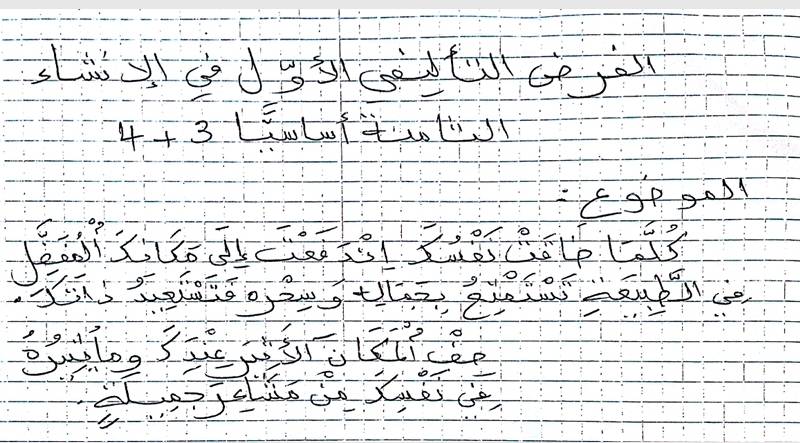 الفرض التأليفي الأوّل في الإنشاء
الثامنة أساسيًّا 3 + 4
الموضوع :
كُلَّمَا ضَاقَتْ نَفْسُكَ اِنْدَفَعْتَ إِلَى مَكَانِكَ الْمُفَضَّلِ
فِي الطَّبِيعَةِ تَسْتَمْتِعُ بِجَمَالِهِ وَسِحْرِهِ فَتَسْتَعِيدُ ذَاتَكَ.
صِفْ الْمَكَانَ الأَثِيرَ عِنْدَكَ وَمَا يُثِيرُهُ
فِي نَفْسِكَ مِنْ مَشَاعِرَ جَمِيلَةٍ.